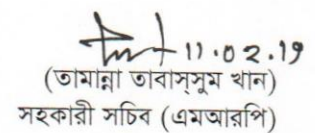 11.02.19
(তামান্না তাবাস্সুম খান)
সহকারী সচিব (এমআরপি)